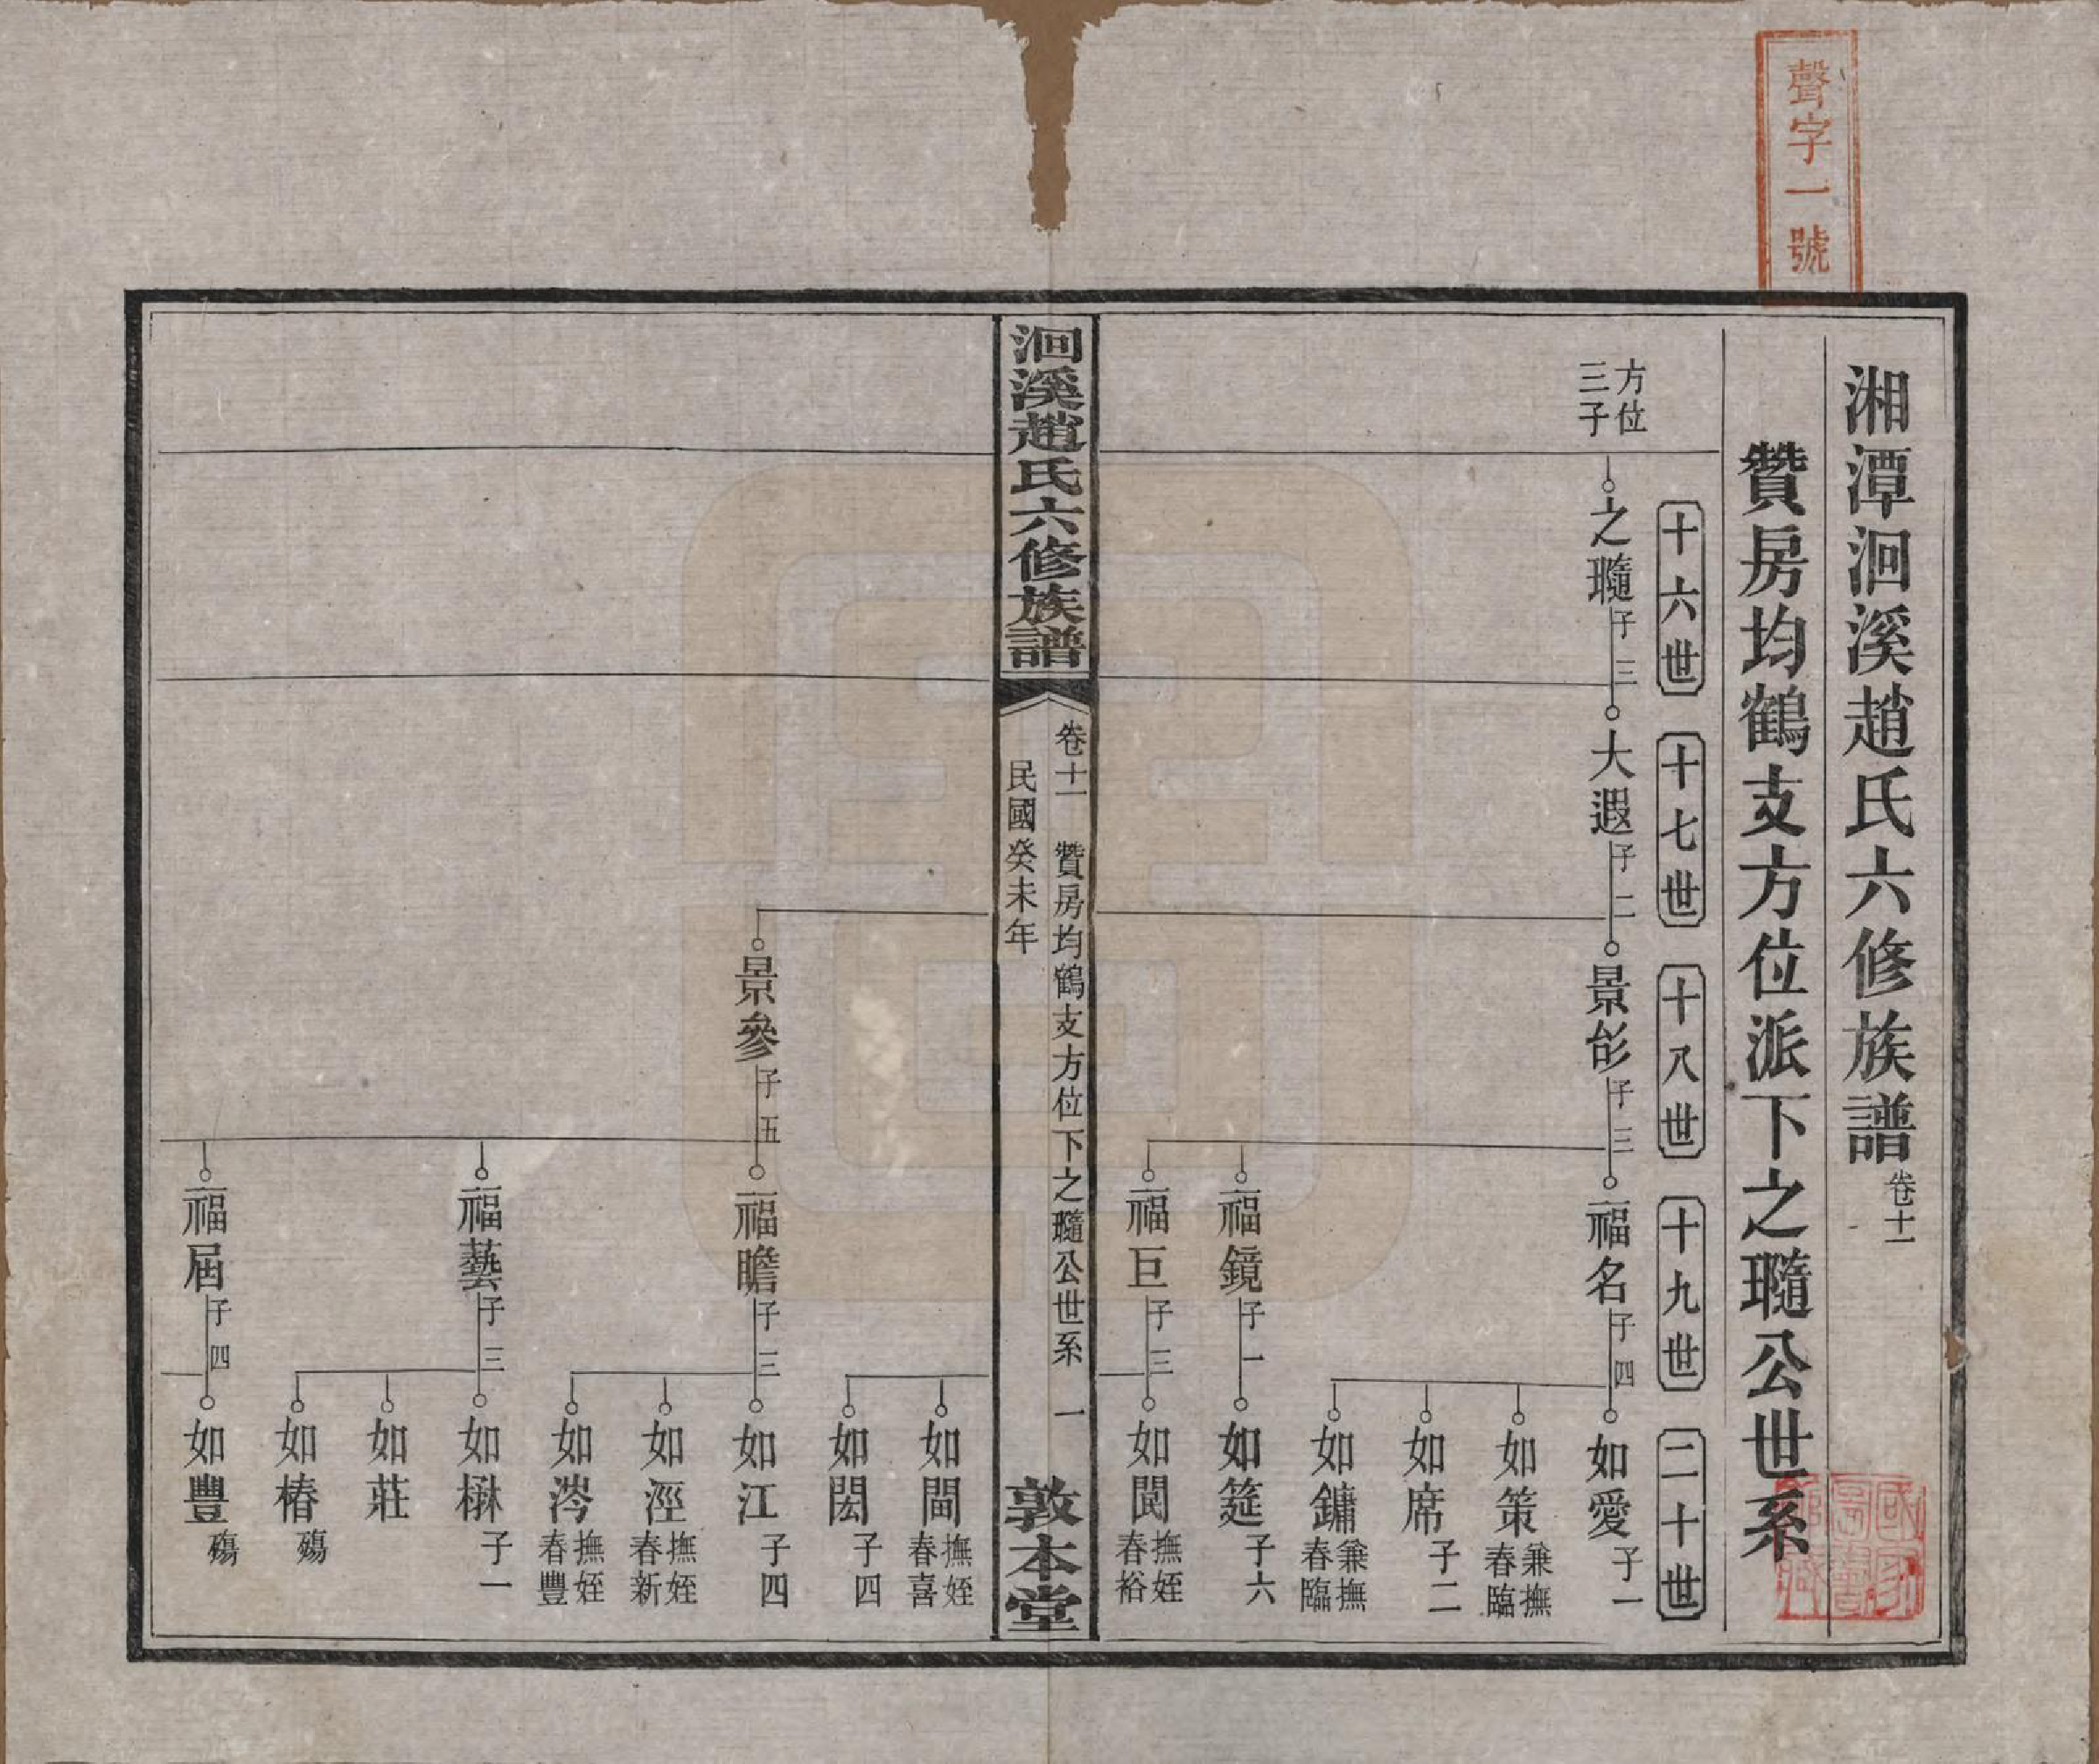 聲字一號
湘潭洄溪趙氏六修族譜 卷十一
贊房均鶴支方位派下之瓍公世系
十六世
十七世
十八世
十九世
二十世
方位
三子
之瓍 子三
大遐 子二
景彣 子三
福名 子四
如愛 子一
如策 兼撫春臨
如席 子二
如鏞 兼撫春臨
福鏡 子一
如筵 子六
福巨 子三
如閬 撫姪春裕
洄溪趙氏六修族譜
卷十一 贊房均鶴支方位下之瓍公世系 一
民國癸未年
敦本堂
如閶 撫姪春喜
如閎 子四
景參 子五
福瞻 子三
如江 子四
如涇 撫姪春新
如涔 撫姪春豐
福藝 子三
如楙 子一
如莊
如椿 殤
福屆 子四
如豐 殤